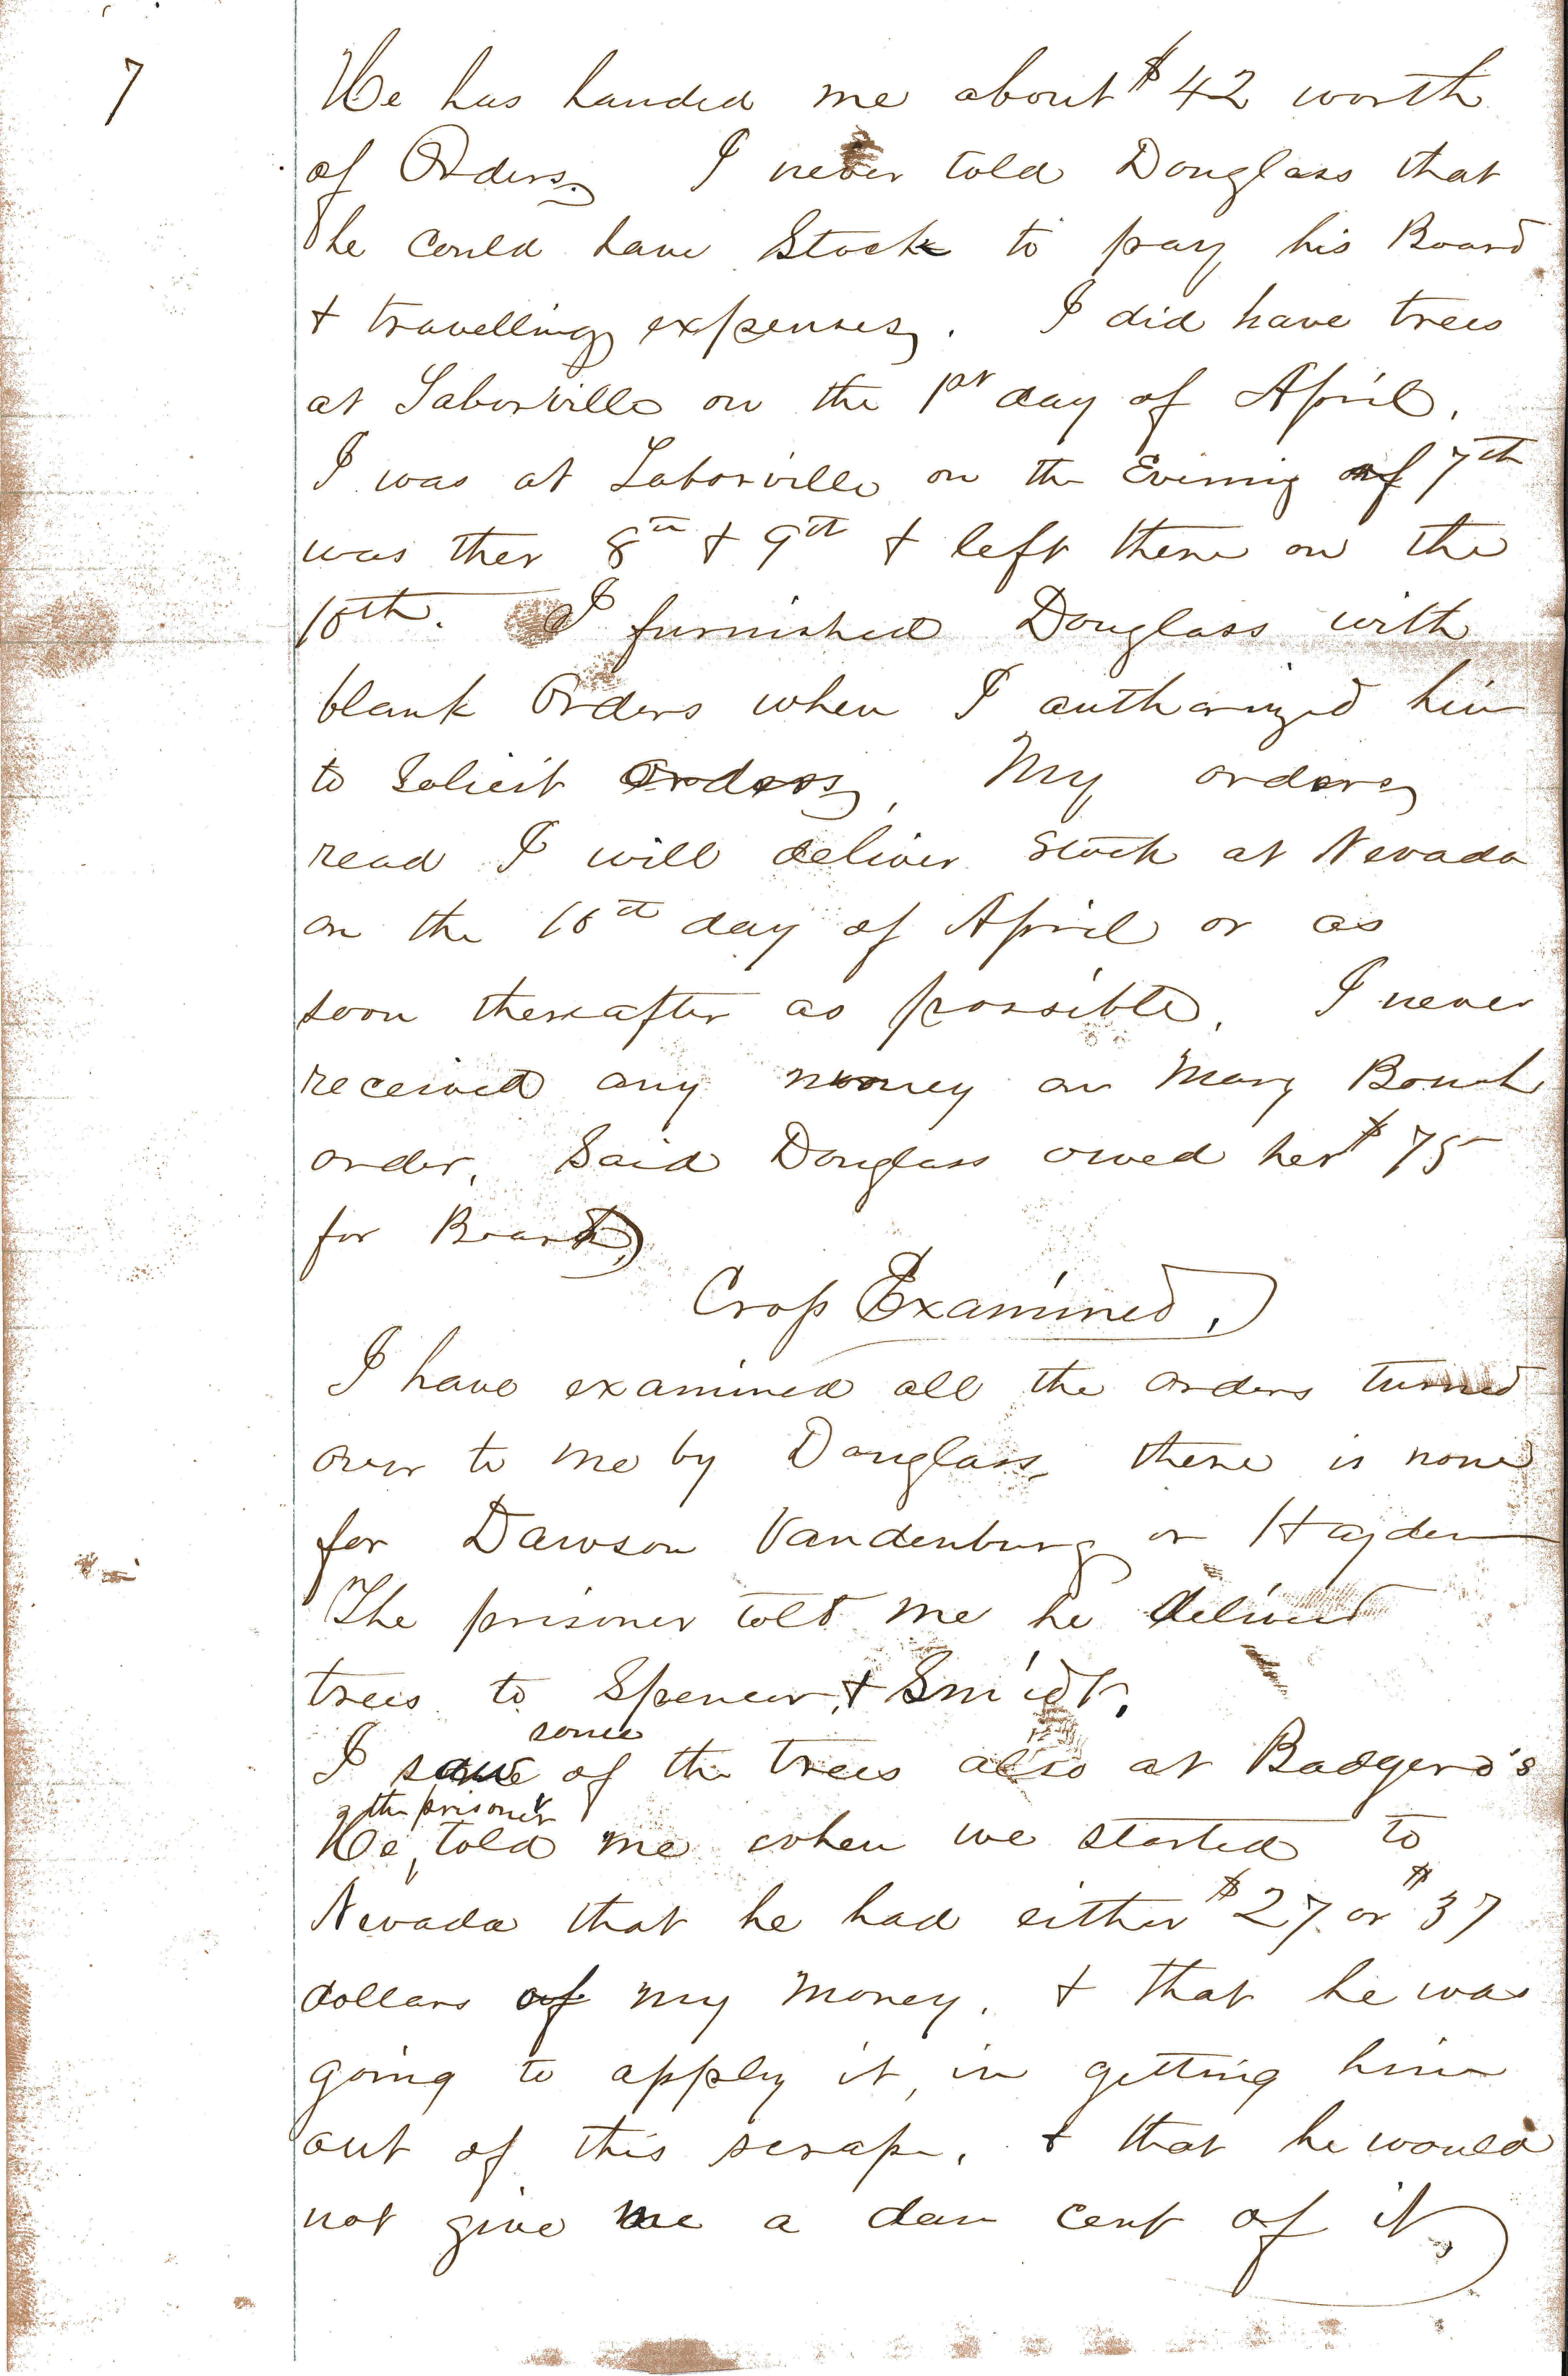 7
He has handed me about $42 worth
of Orders. I never told Douglass that
he could have Stock to pay his Board
& travelling expenses. I did have trees
at Laborville on the 1st day of April.
I was at Laborville on the Evening of 7th
was ther 8th & 9th & left there on the
10th. I furnished Douglass with
blank Orders when I authorized him
to Solicit Orders, My orders
read I will deliver Stock at Nevada
on the 10th day of April or as
soon thereafter as possible. I never
received any money on Mary
order, Said Douglass owed her $75
for Board.
Crop Examined.
I have examined all the orders turned
over to me by Douglass, there is none
for Dawson Vandenburg or Hayden
The prisoner told me he delivered
trees to Spencer, & Smidt.
I saw some of the trees also at Badgero's
He, the prisoner told me when we started to
Nevada that he had either $27 or $37
dollars of my money. & that he was
going to apply it, in getting him
out of this scrape. & that he would
not give me a dam cent of it.